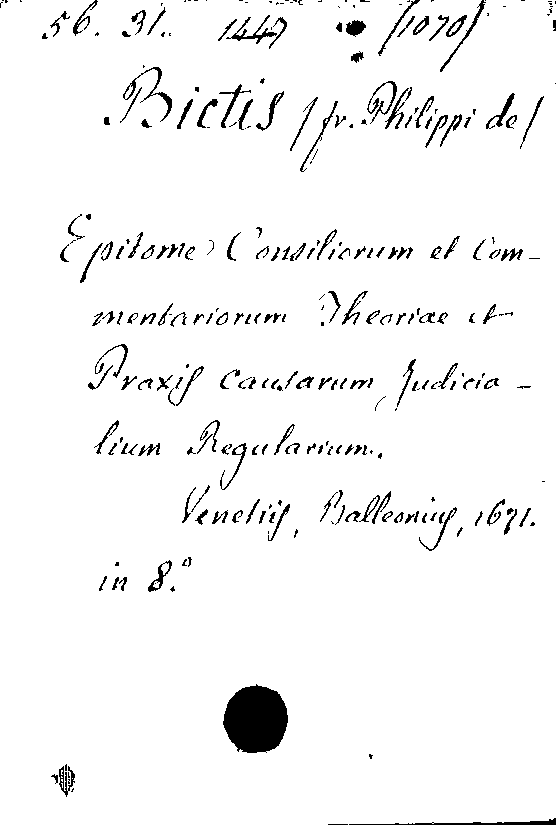 56. 31. 1447 [1070]
Bictis / fr. Philippi de /
Epitome Consiliorum et Com-
mentariorum Theoriae et
Praxis causarum Judicia-
lium Regularium.
Venetiis, Balleonius, 1671.
in 8.º